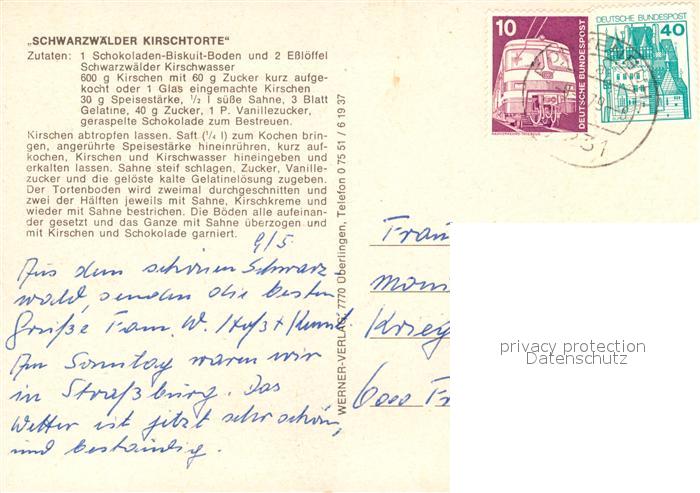 „SCHWARZWÄLDER KIRSCHTORTE“
Zutaten: 1 Schokoladen-Biskuit-Boden und 2 Eßlöffel
Schwarzwälder Kirschwasser
600 g Kirschen mit 60 g Zucker kurz aufge-
kocht oder 1 Glas eingemachte Kirschen
30 g Speisestärke, ½ l süße Sahne, 3 Blatt
Gelatine, 40 g Zucker, 1 P. Vanillezucker,
geraspelte Schokolade zum Bestreuen.
Kirschen abtropfen lassen. Saft (¼ l) zum Kochen brin-
gen, angerührte Speisestärke hineinrühren, kurz auf-
kochen, Kirschen und Kirschwasser hineingeben und
erkalten lassen. Sahne steif schlagen, Zucker, Vanille-
zucker und die gelöste kalte Gelatinelösung zugeben.
Der Tortenboden wird zweimal durchgeschnitten und
zwei der Hälften jeweils mit Sahne, Kirschkreme und
wieder mit Sahne bestrichen. Die Böden alle aufeinan-
der gesetzt und das Ganze mit Sahne überzogen und
mit Kirschen und Schokolade garniert.
9/5
Aus dem schönen Schwarz
wald, senden die besten
Grüße Fam. W.
Am Sonntag waren wir
in Straßburg. Das
Wetter ist jetzt sehr schön,
und beständig.
WERNER-VERLAG, 7770 Überlingen, Telefon 0 75 51 / 6 19 37
10
DEUTSCHE BUNDESPOST
DEUTSCHE BUNDESPOST
40
Frau
Moni
Krieg
6000 Fr
privacy protection
Datenschutz